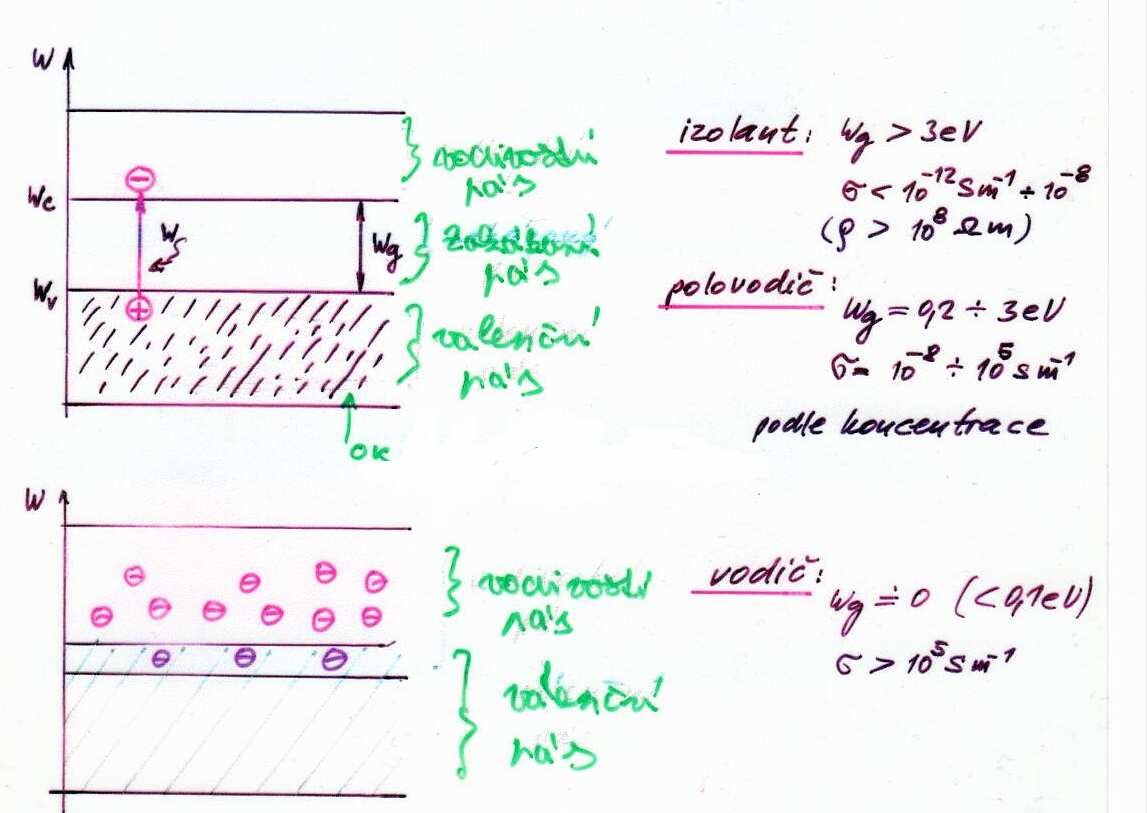 W
vodivostní
pás
Wc
W
Wg
zakázaný
pás
Wv
valenční
pás
0K
izolant: Wg > 3eV
σ < 10⁻¹² Sm⁻¹ ÷ 10⁻⁸
(ρ > 10⁸ Ωm)
polovodič:
Wg = 0,2 ÷ 3eV
σ = 10⁻⁸ ÷ 10⁵ Sm⁻¹
podle koncentrace
W
vodivostní
pás
valenční
pás
vodič:
Wg ≐ 0 (<0,1eV)
σ > 10⁵ Sm⁻¹